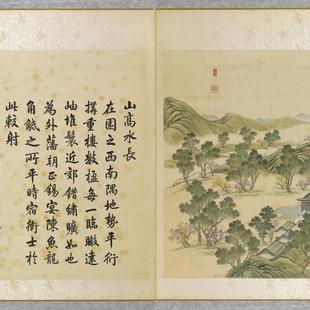 山高水長
在園之西南隅地勢平衍
搆重樓數楹每一臨瞰遠
岫堆鬟近郊錯繡曠如也
為外藩朝正錫宴陳魚龍
角觝之所平時宿衛士於
此較射